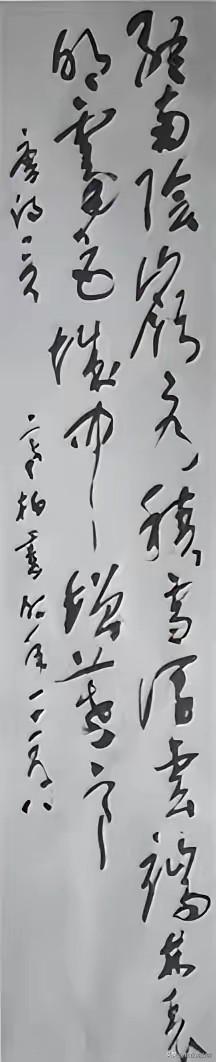 終南陰嶺秀積雪浮雲端林表
明霽色城中增暮寒
唐詩一首